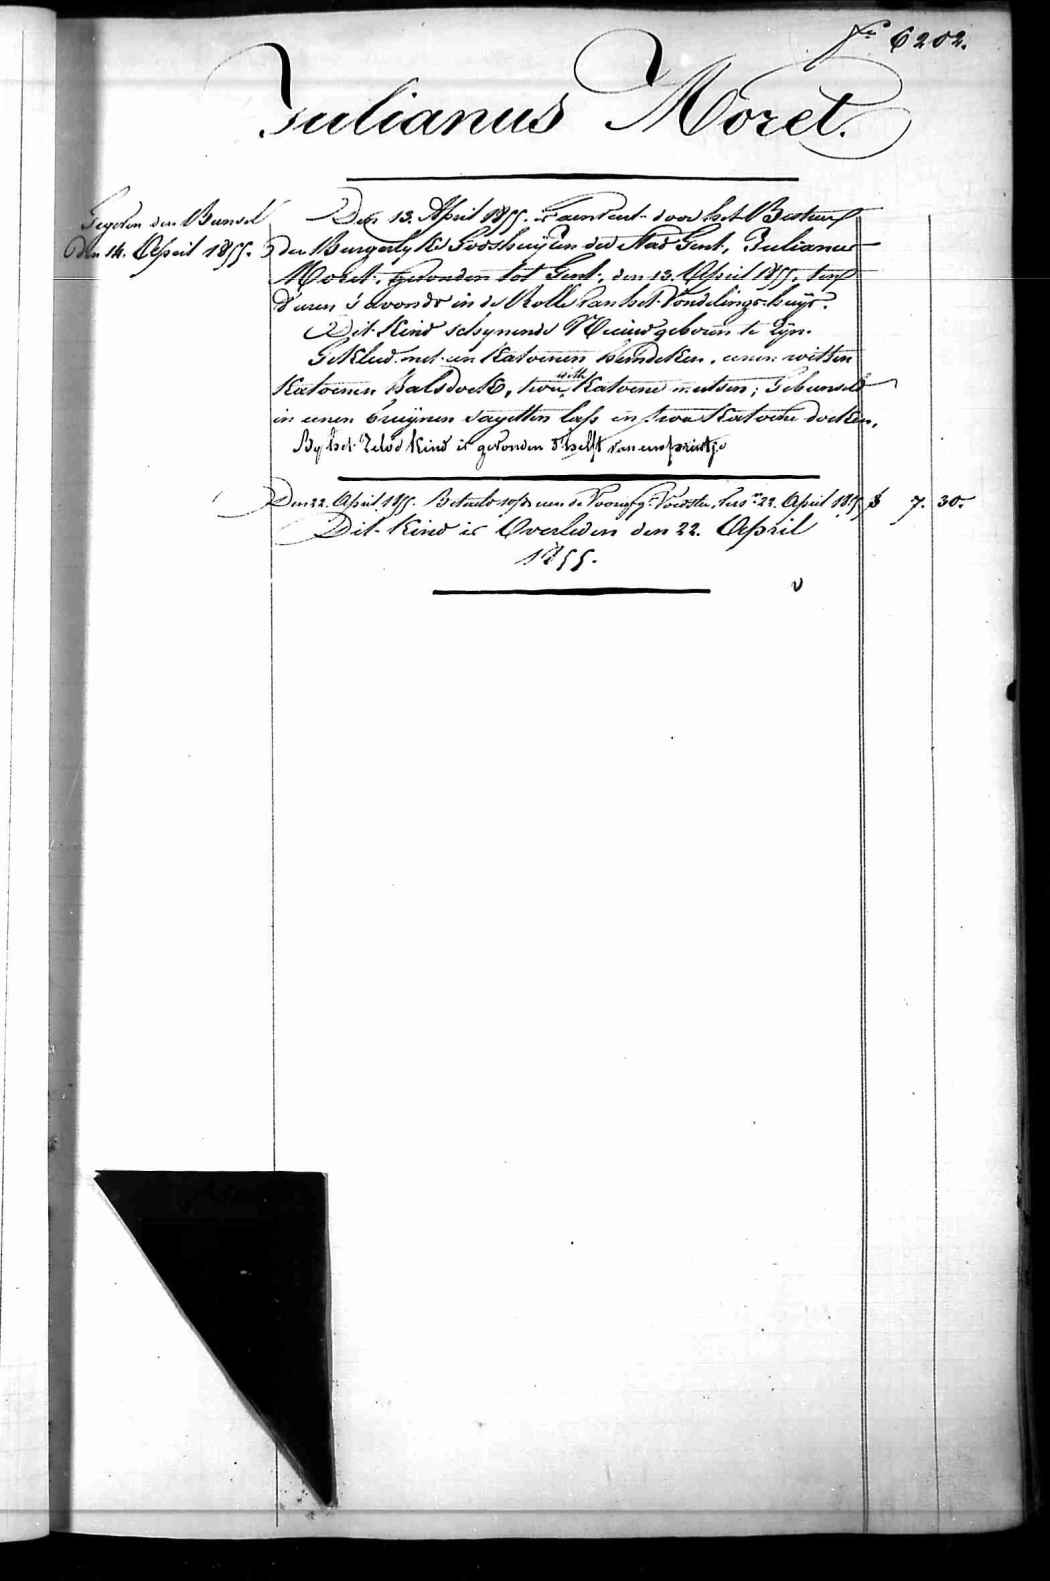 fo 6202.
Julianus Moret.
Gegeven den Bunsel
den 14. April 1855.
Den 13. April 1855. is aenveert door het Bestuer
der Burgerlyke Godshuijzen der Stad Gent, Julianus
Moret, gevonden tot Gent, den 13. April 1855, ten
uren 's avonds in de Rolle van het Vondelings-huijs.
Dit Kind schynende Nieuw geboren te zijn.
Gekleed met een Katoenen hemdeken, eenen witten
Katoenen halsdoek, twee witte Katoene mutsen; Gebunseld
in eenen bruijnen sayetten laps en twee Katoene doeken,
By het zelve Kind is gevonden d'helft van een printje
Den 22. April 1855. Betaeld aen de Voorsz. Voedster, 22. April 1855 7. 30.
Dit Kind is Overleden den 22. April
1855.